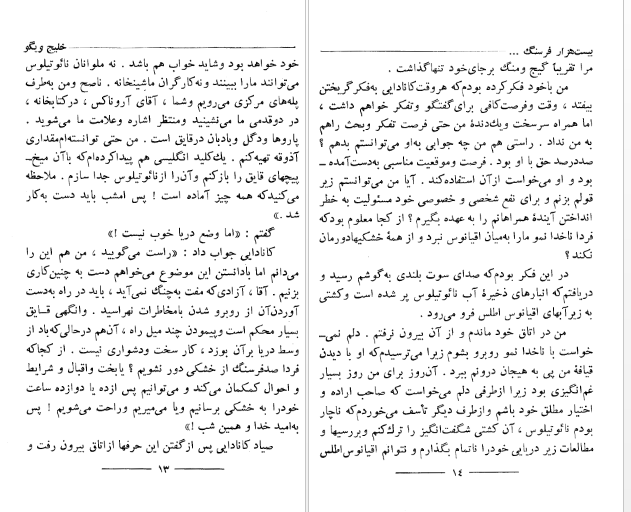 خلیج ویگو
خود خواهد بود وشاید خواب هم باشد . نه ملوانان نائوتیلوس
می‌توانند مارا ببینند ونه‌کارگران ماشینخانه . ناصح ومن به‌طرف
پله‌های مرکزی می‌رویم وشما ، آقای آروناکس ، درکتابخانه ،
در دوقدمی ما می‌نشینید ومنتظر اشاره وعلامت ما می‌شوید .
پاروها ودگل وبادبان درقایق است . من حتی توانسته‌ام‌مقداری
آذوقه تهیه‌کنم . یك‌کلید انگلیسی هم پیداکرده‌ام‌که باآن میخ‌ـ
پیچهای قایق را بازکنم وآن‌را ازنائوتیلوس جدا سازم . ملاحظه
می‌کنیدکه همه چیز آماده است ! پس امشب باید دست به‌کار
شد .»
گفتم : «اما وضع دریا خوب نیست !»
کانادایی جواب داد : «راست می‌گویید ، من هم این را
می‌دانم اما بادانستن این موضوع می‌خواهم دست به چنین‌کاری
بزنیم . آقا ، آزادی‌که مفت به‌چنگ نمی‌آید ، باید در راه به‌دست
آوردن‌آن از روبرو شدن بامخاطرات نهراسید . وانگهی قایق
بسیار محکم است وپیمودن چند میل راه ، آن‌هم درحالی‌که‌باد از
وسط دریا برآن بوزد ، کار سخت ودشواری نیست . از کجاکه
فردا صدفرسنگ از خشکی دور نشویم ؟ یابخت واقبال و شرایط
و احوال کمکمان می‌کند و می‌توانیم پس ازده یا دوازده ساعت
خودرا به خشکی برسانیم ویا می‌میریم وراحت می‌شویم ! پس
به‌امید خدا و همین شب !»
صیاد کانادایی پس ازگفتن این حرفها ازاتاق بیرون رفت و
۱۳
بیست‌هزار فرسنگ ...
مرا تقریباً گیج ومنگ برجای‌خود تنهاگذاشت .
من باخود فکرکرده بودم‌که هروقت‌کانادایی به‌فکرگریختن
بیفتد ، وقت وفرصت‌کافی برای‌گفتگو وتفکر خواهم داشت ،
اما همراه سرسخت ویك‌دندۀ من حتی فرصت تفکر وبحث راهم
به من نداد . راستی هم من چه جوابی به‌او می‌توانستم بدهم ؟
صددرصد حق با او بود . فرصت وموقعیت مناسبی به‌دست‌آمده ـ
بود و او می‌خواست ازآن استفاده‌کند . آیا من می‌توانستم زیر
قولم بزنم و برای نفع شخصی و خصوصی خود مسئولیت به خطر
انداختن آیندۀ همراهانم را به عهده بگیرم ؟ از کجا معلوم بودکه
فردا ناخدا نمو مارا به‌میان اقیانوس نبرد و از همۀ خشکیهادورمان
نکند ؟
در این فکر بودم‌که صدای سوت بلندی به‌گوشم رسید و
دریافتم‌که انبارهای ذخیرۀ آب نائوتیلوس پر شده است وکشتی
به زیرآبهای اقیانوس اطلس فرو می‌رود .
من در اتاق خود ماندم و از آن بیرون نرفتم . دلم نمی‌ـ
خواست با ناخدا نمو روبرو بشوم زیرا می‌ترسیدم‌که او با دیدن
قیافۀ من پی به هیجان درونم ببرد . آن‌روز برای من روز بسیار
غم‌انگیزی بود زیرا ازطرفی دلم می‌خواست که صاحب اراده و
اختیار مطلق خود باشم وازطرف دیگر تأسف می‌خوردم‌که ناچار
بودم نائوتیلوس ، آن کشتی شگفت‌انگیز را ترك‌کنم وبررسیها و
مطالعات زیر دریایی خودرا ناتمام بگذارم و نتوانم اقیانوس‌اطلس
۱۴